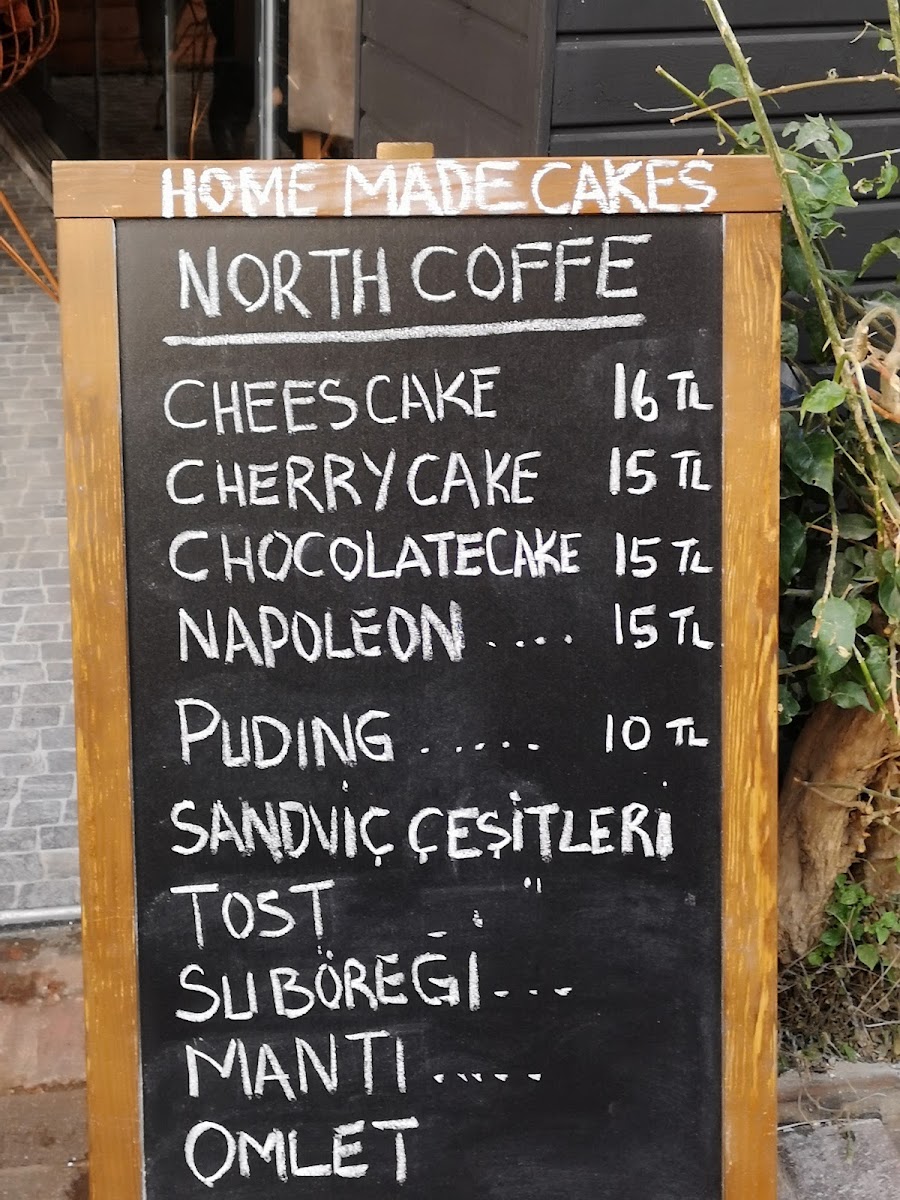 HOME MADE CAKES
NORTH COFFE
CHEESCAKE 16 TL
CHERRYCAKE 15 TL
CHOCOLATECAKE 15 TL
NAPOLEON .... 15 TL
PUDING ...... 10 TL
SANDVİÇ ÇEŞİTLERİ
TOST
SU BÖREĞI ---
MANTI .....
OMLET